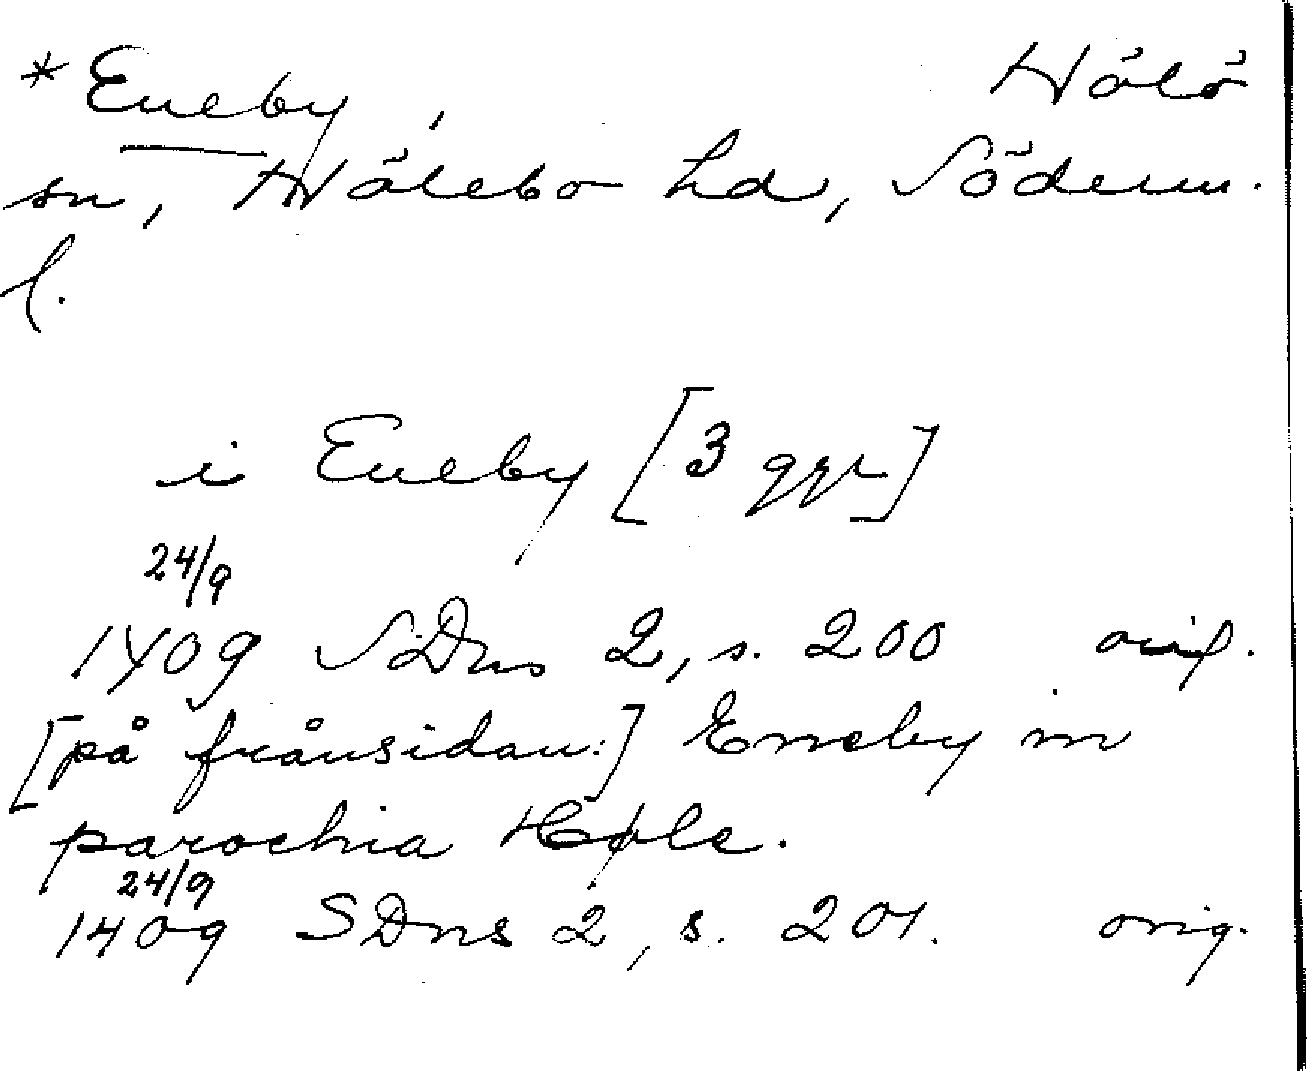 * Eneby, Hölö
sn, Hölebo hd, Söderm.
l.
i Eneby [3 ggr]
24/9
1409 SDns 2, s. 200 orig.
[på frånsidan:] Eneby in
parochia Høle.
24/9
1409 SDns 2, s. 201. orig.